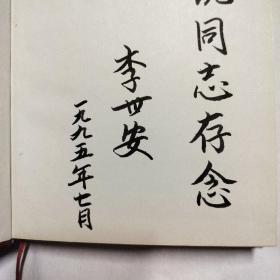 同志存念
李世安
一九九五年七月